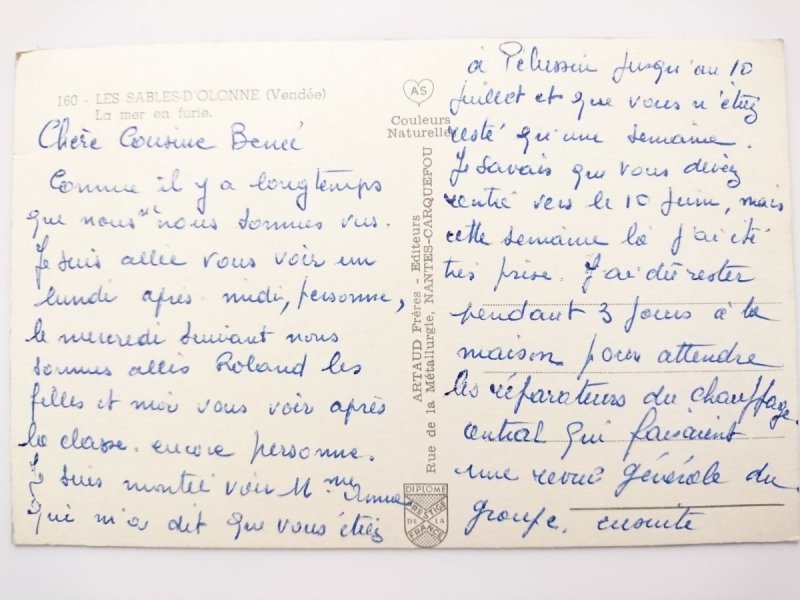 160 - LES SABLES-D'OLONNE (Vendée)
La mer en furie.
Chère Cousine Benée
Comme il y a longtemps
que nous ne nous sommes vus.
Je suis allée vous voir un
lundi après-midi, personne,
le mercredi suivant nous
sommes allés Roland les
filles et moi vous voir après
la classe. encore personne.
Je suis montée voir Mme
qui m'a dit que vous étiez
AS
Couleurs
Naturelles
ARTAUD Frères - Editeurs
Rue de la Métallurgie, NANTES-CARQUEFOU
DIPLOME
PRESTIGE
DE LA
FRANCE
à Pelussin jusqu'au 10
juillet et que vous n'étiez
resté qu'une semaine.
Je savais que vous deviez
rentré vers le 10 Juin, mais
cette semaine là j'ai été
très prise. J'ai dû rester
pendant 3 jours à la
maison pour attendre
les réparateurs du chauffage
central qui faisaient
une revue générale du
groupe. ensuite